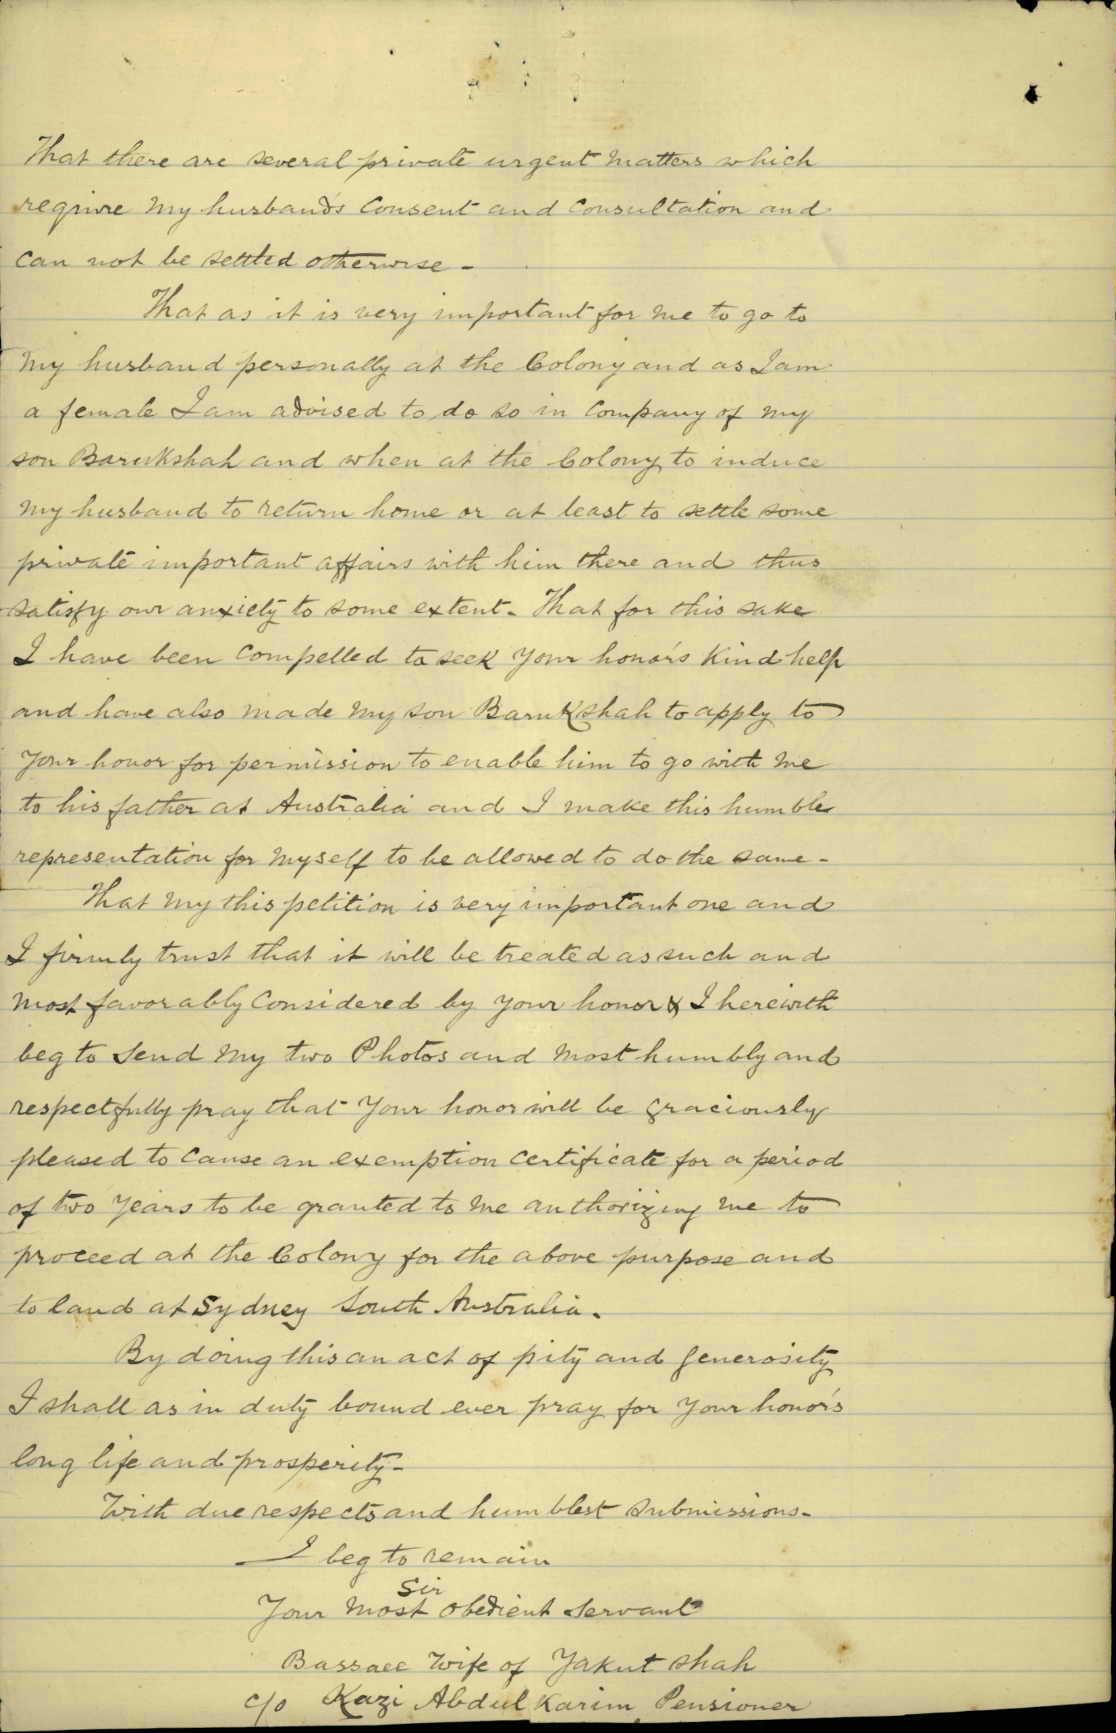 That there are several private urgent matters which
require my husband's Consent and Consultation and
can not be settled otherwise -
That as it is very important for me to go to
my husband personally at the Colony and as I am
a female I am advised to do so in Company of my
son Barukshah and when at the Colony to induce
my husband to return home or at least to settle some
private important affairs with him there and thus
satisfy our anxiety to some extent. That for this sake
I have been Compelled to seek your honor's Kind help
and have also made my son Barukshah to apply to
your honor for permission to enable him to go with me
to his father at Australia and I make this humble
representation for myself to be allowed to do the same -
That my this petition is very important one and
I firmly trust that it will be treated as such and
most favorably Considered by your honor & I herewith
beg to send my two Photos and most humbly and
respectfully pray that your honor will be graciously
pleased to Cause an exemption Certificate for a period
of two years to be granted to me authorizing me to
proceed at the Colony for the above purpose and
to land at Sydney South Australia.
By doing this an act of pity and generosity
I shall as in duty bound ever pray for your honor's
long life and prosperity -
With due respects and humblest submissions -
I beg to remain
Sir
Your most obedient Servant
Wife of Yakut shah
c/o Kazi Abdul Karim Pensioner